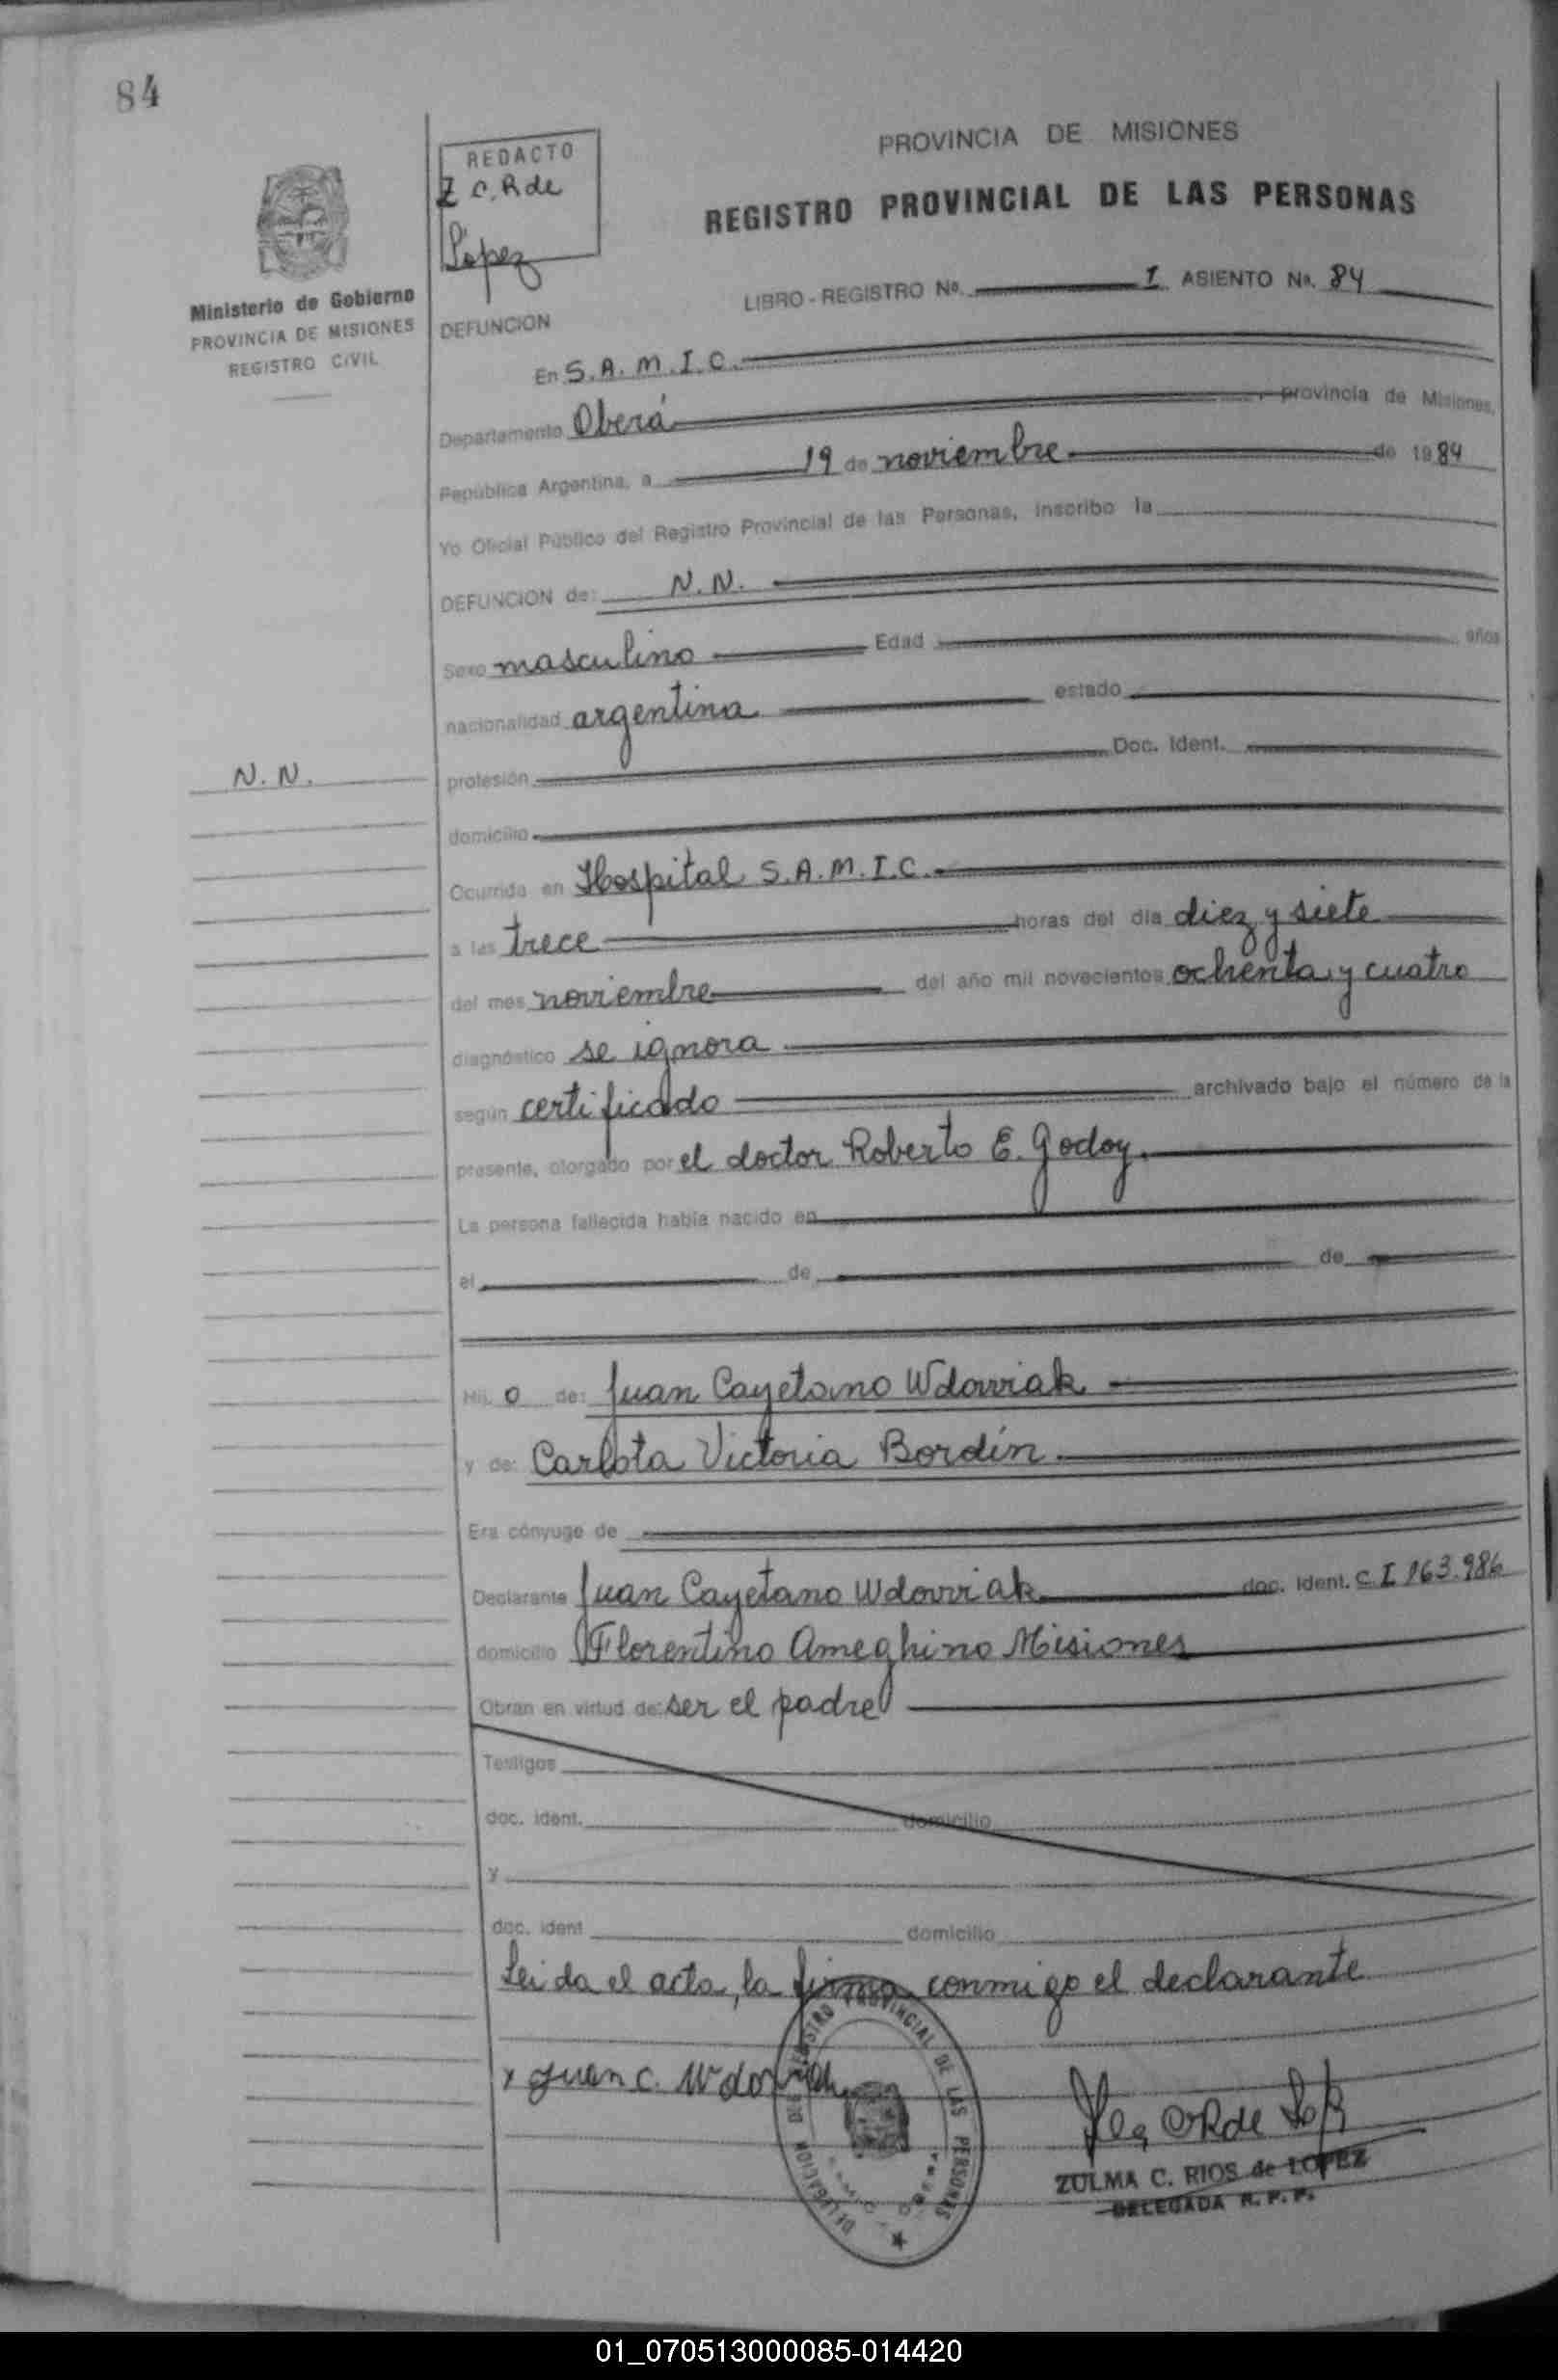 84
REDACTO
Z C. R de
López
Ministerio de Gobierno
PROVINCIA DE MISIONES
REGISTRO CIVIL
PROVINCIA DE MISIONES
REGISTRO PROVINCIAL DE LAS PERSONAS
LIBRO - REGISTRO Nº. I ASIENTO Nº. 84
DEFUNCION
En S. A. M. I. C.
Departamento Oberá, provincia de Misiones,
República Argentina, a 19 de noviembre de 1984
Yo Oficial Público del Registro Provincial de las Personas, inscribo la
DEFUNCION de: N. N.
Sexo masculino Edad años
nacionalidad argentina estado
N. N.
profesión Doc. Ident.
domicilio
Ocurrida en Hospital S. A. M. I. C.
a las trece horas del día diez y siete
del mes noviembre del año mil novecientos ochenta y cuatro
diagnóstico se ignora
según certificado archivado bajo el número de la
presente, otorgado por el doctor Roberto E. Godoy.
La persona fallecida había nacido en
el de de
Hij o de: Juan Cayetano Wdowiak
y de: Carlota Victoria Bordín.
Era cónyuge de
Declarante Juan Cayetano Wdowiak doc. Ident. C I 163.986
domicilio Florentino Ameghino Misiones
Obran en virtud de: ser el padre
Testigos
doc. ident. domicilio
y
doc. ident domicilio
Leida el acta, la firma conmigo el declarante
x Juan C. Wdowiak
DELEGACION DEL REGISTRO PROVINCIAL DE LAS PERSONAS
ZULMA C. RIOS de LOPEZ
DELEGADA R. P. P.
01_070513000085-014420